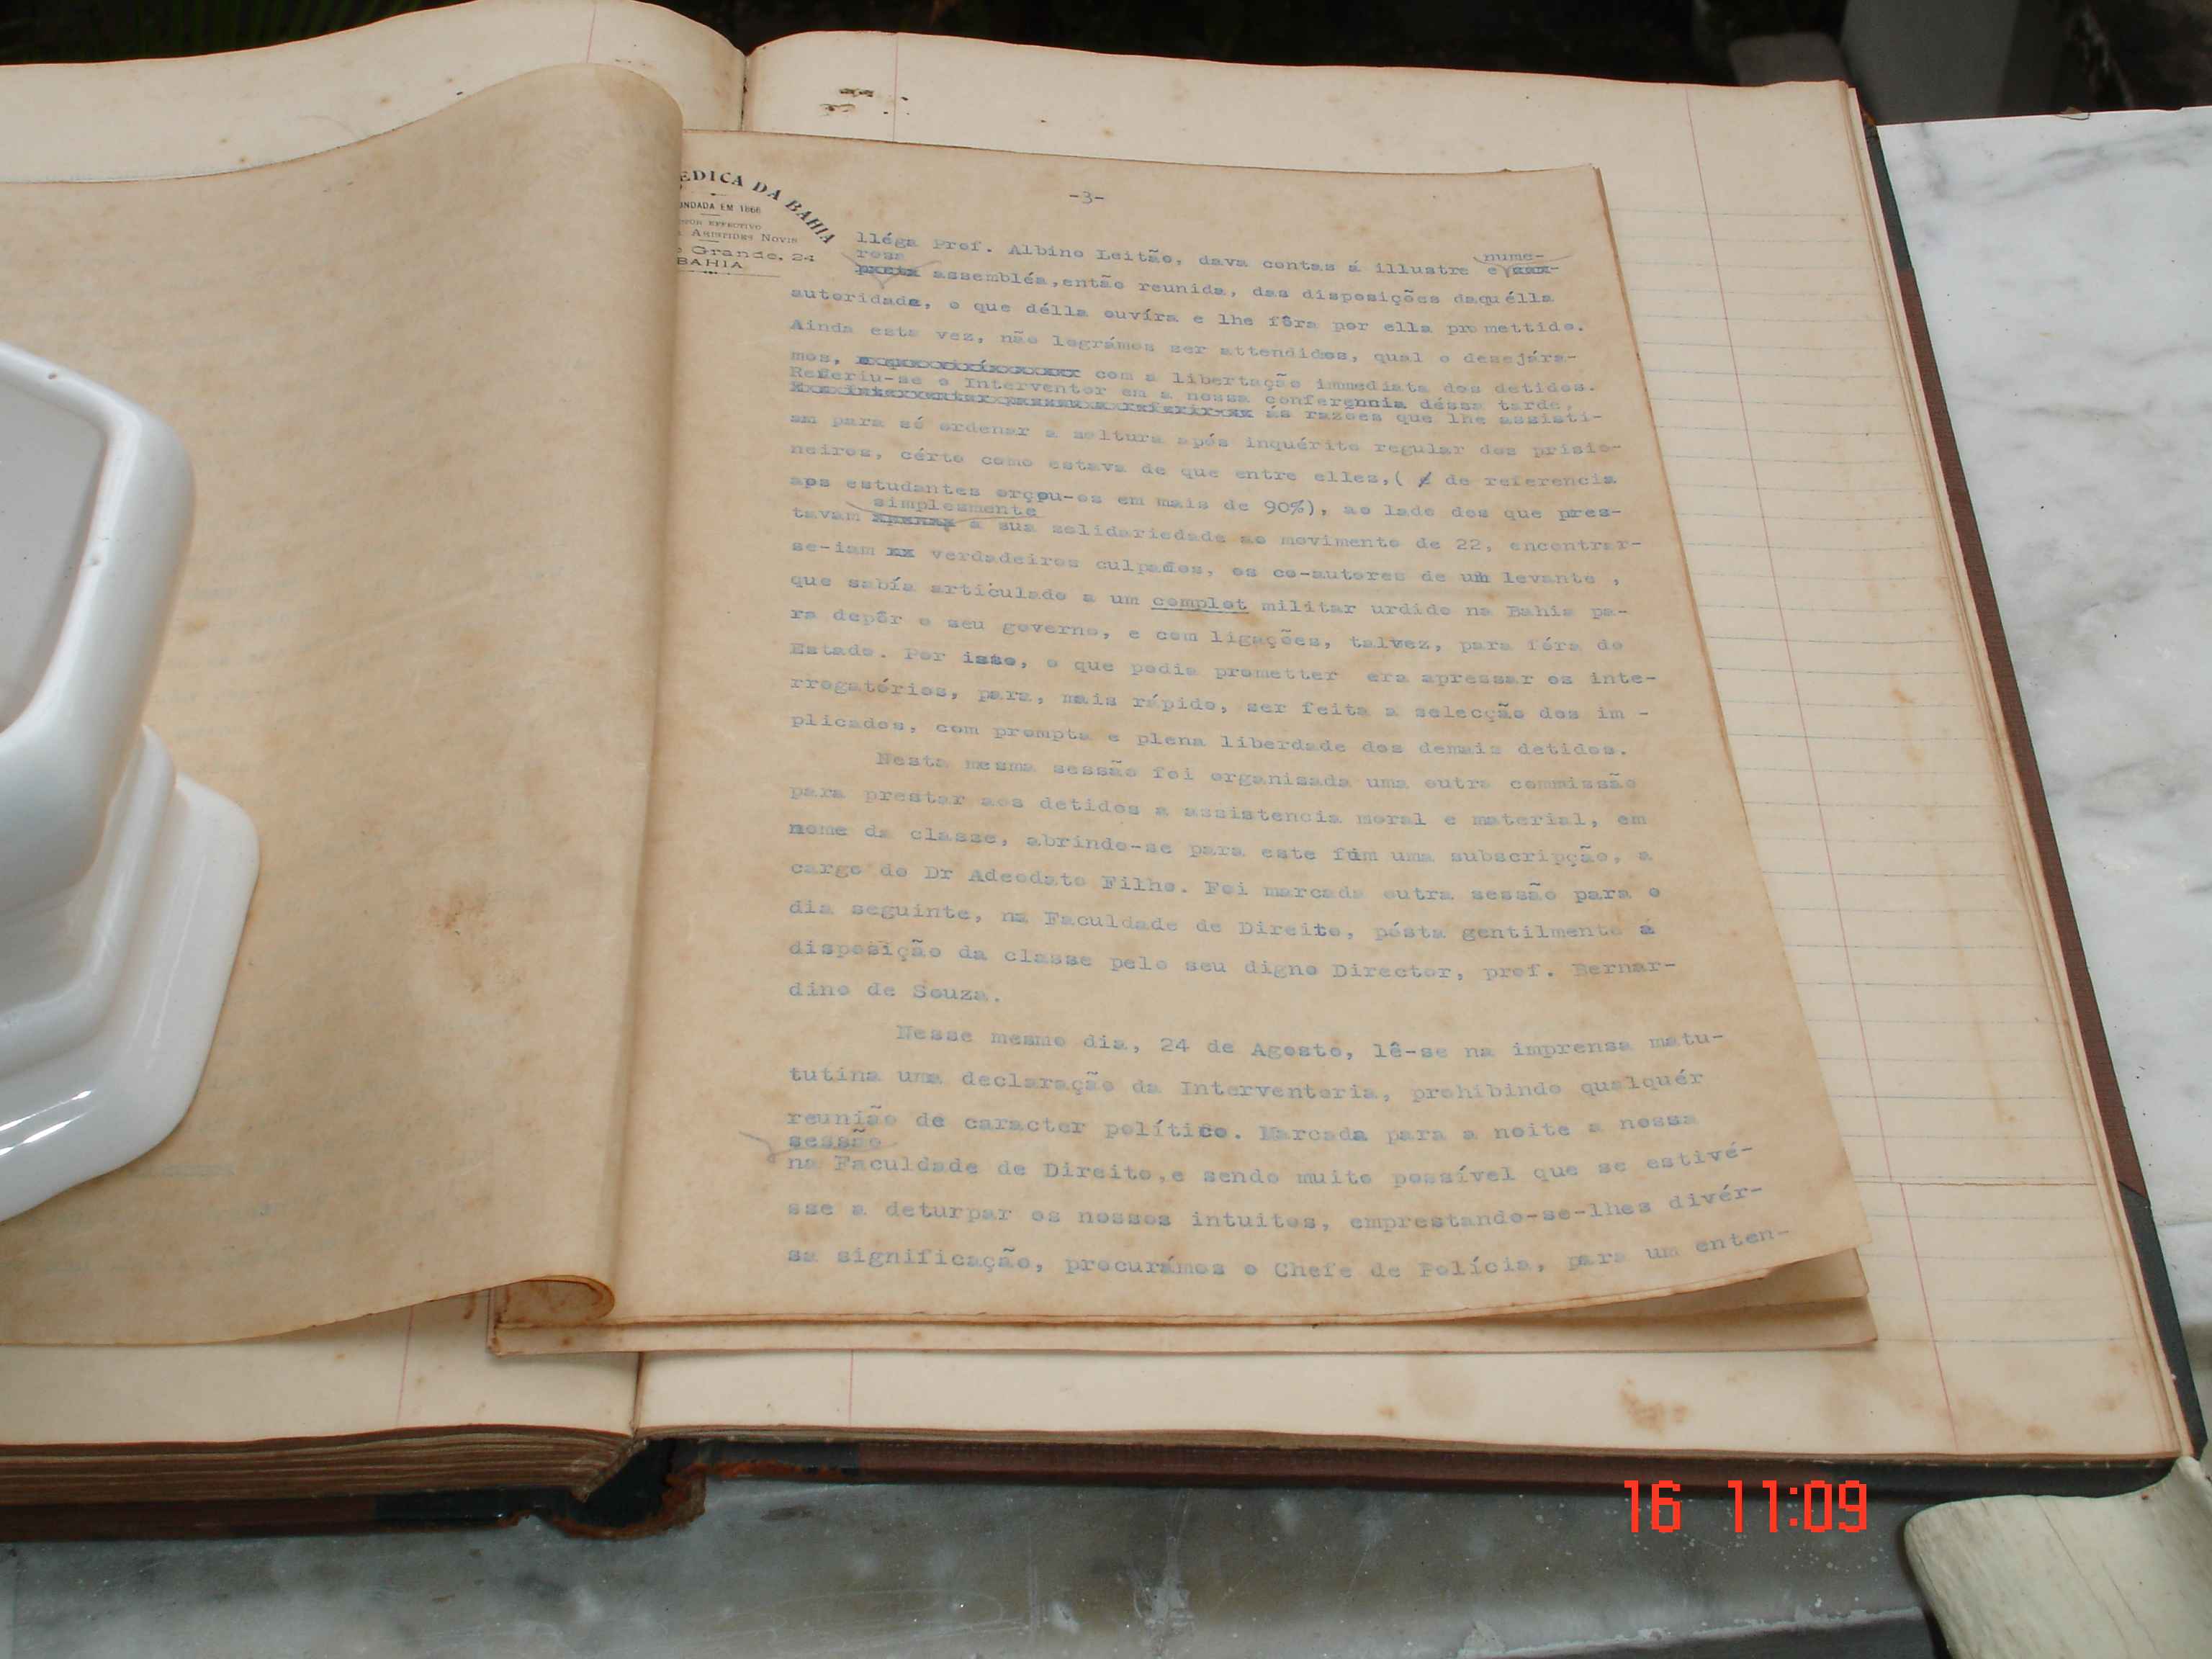 EDICA DA BAHIA
NDADA EM 1866
EFFECTIVO
ARISTIDES NOVIS
Grande, 24
BAHIA
-3-
lléga Prof. Albino Leitão, dava contas á illustre e
nume-
rosa
assembléa,então reunida, das disposições daquélla
autoridade, o que délla ouvíra e lhe fôra por ella promettido.
Ainda esta vez, não lográmos ser attendidos, qual o desejára-
mos, com a libertação immediata dos detidos.
Referiu-se o Interventor em a nossa conferennia déssa tarde,
ás razões que lhe assisti-
am para só ordenar a soltura após inquérito regular dos prisio-
neiros, cérto como estava de que entre elles,( de referencia
aos estudantes orçou-os em mais de 90%), ao lado dos que pres-
simplesmente
tavam a sua solidariedade ao movimento de 22, encontrar-
se-iam verdadeiros culpados, os co-autores de um levante ,
que sabía artículado a um complot militar urdido na Bahia pa-
ra depôr o seu governo, e com ligações, talvez, para fóra do
Estado. Por isso, o que podia prometter era apressar os inte-
rrogatórios, para, mais rápido, ser feita a selecção dos im -
plicados, com prompta e plena liberdade dos demais detidos.
Nesta mesma sessão foi organisada uma outra commissão
para prestar aos detidos a assistencia moral e material, em
nome da classe, abrindo-se para este fim uma subscripção, a
cargo do Dr Adeodato Filho. Foi marcada outra sessão para o
dia seguinte, na Faculdade de Direito, pósta gentilmente á
disposição da classe pelo seu digno Director, prof. Bernar-
dino de Souza.
Nesse mesmo dia, 24 de Agosto, lê-se na imprensa matu-
tutina uma declaração da Interventoria, prohibindo qualquér
reunião de caracter polítíco. Marcada para a noite a nossa
sessão
na Faculdade de Direito,e sendo muito possível que se estivé-
sse a deturpar os nossos intuitos, emprestando-se-lhes divér-
sa significação, procurámos o Chefe de Polícia, para um enten-
16 11:09